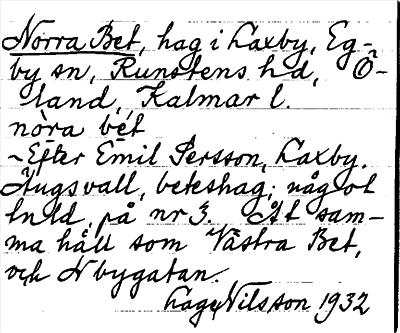 Norra Bet, hag i Laxby, Eg-
by sn, Runstens hd, Ö-
land, Kalmar l.
nòra bét
~Efter Emil Persson, Laxby.
Ängsvall, beteshag; något
på nr 3. Åt sam-
ma håll som Västra Bet,
och N bygatan.
Lage Nilsson 1932